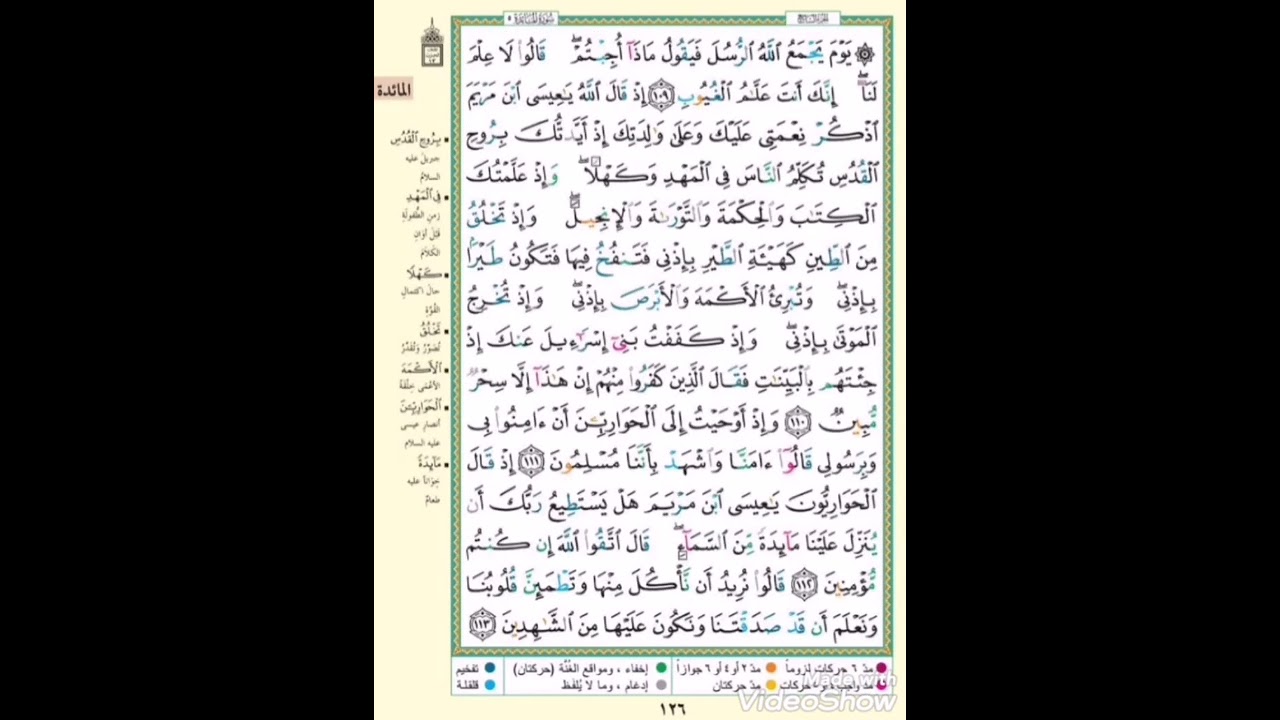 سُورَةُ المَائِدَة ٥
الجزء السابع
۞ يَوْمَ يَجْمَعُ اللَّهُ الرُّسُلَ فَيَقُولُ مَاذَآ أُجِبْتُمْ ۖ قَالُوا۟ لَا عِلْمَ
لَنَآ ۖ إِنَّكَ أَنتَ عَلَّـٰمُ الْغُيُوبِ ١٠٩ إِذْ قَالَ اللَّهُ يَـٰعِيسَى ابْنَ مَرْيَمَ
اذْكُرْ نِعْمَتِى عَلَيْكَ وَعَلَىٰ وَٰلِدَتِكَ إِذْ أَيَّدتُّكَ بِرُوحِ
الْقُدُسِ تُكَلِّمُ النَّاسَ فِى الْمَهْدِ وَكَهْلًا ۖ وَإِذْ عَلَّمْتُكَ
الْكِتَـٰبَ وَالْحِكْمَةَ وَالتَّوْرَىٰةَ وَالْإِنجِيلَ ۖ وَإِذْ تَخْلُقُ
مِنَ الطِّينِ كَهَيْـَٔةِ الطَّيْرِ بِإِذْنِى فَتَنفُخُ فِيهَا فَتَكُونُ طَيْرًۢا
بِإِذْنِى ۖ وَتُبْرِئُ الْأَكْمَهَ وَالْأَبْرَصَ بِإِذْنِى ۖ وَإِذْ تُخْرِجُ
الْمَوْتَىٰ بِإِذْنِى ۖ وَإِذْ كَفَفْتُ بَنِىٓ إِسْرَٰٓءِيلَ عَنكَ إِذْ
جِئْتَهُم بِالْبَيِّنَـٰتِ فَقَالَ الَّذِينَ كَفَرُوا۟ مِنْهُمْ إِنْ هَـٰذَآ إِلَّا سِحْرٌ
مُّبِينٌ ١١٠ وَإِذْ أَوْحَيْتُ إِلَى الْحَوَارِيِّـۧنَ أَنْ ءَامِنُوا۟ بِى
وَبِرَسُولِى قَالُوٓا۟ ءَامَنَّا وَاشْهَدْ بِأَنَّنَا مُسْلِمُونَ ١١١ إِذْ قَالَ
الْحَوَارِيُّونَ يَـٰعِيسَى ابْنَ مَرْيَمَ هَلْ يَسْتَطِيعُ رَبُّكَ أَن
يُنَزِّلَ عَلَيْنَا مَآئِدَةً مِّنَ السَّمَآءِ ۖ قَالَ اتَّقُوا۟ اللَّهَ إِن كُنتُم
مُّؤْمِنِينَ ١١٢ قَالُوا۟ نُرِيدُ أَن نَّأْكُلَ مِنْهَا وَتَطْمَئِنَّ قُلُوبُنَا
وَنَعْلَمَ أَن قَدْ صَدَقْتَنَا وَنَكُونَ عَلَيْهَا مِنَ الشَّـٰهِدِينَ ١١٣
المائدة
بِرُوحِ الْقُدُسِ
جبريلَ عليه
السلامُ
فِى الْمَهْدِ
زمنَ الطُّفولَةِ
قَبْلَ أَوَانِ
الكَلَامِ
كَهْلًا
حالَ اكتمالِ
القُوَّةِ
تَخْلُقُ
تُصَوِّرُ وَتُقَدِّرُ
الْأَكْمَهَ
الأعْمَى خِلْقَةً
الْحَوَارِيِّـۧنَ
أنصارِ عيسى
عليه السلام
مَآئِدَةً
خِوَانًا عليه
طعامٌ
مدّ ٦ حركات لزوماً
مدّ ٢ أو ٤ أو ٦ جوازاً
إخفاء ، ومواقع الغُنَّة (حركتان)
تفخيم
مدّ حركتان
إدغام ، وما لا يُلفَظ
قلقلة
Made with
VideoShow
١٢٦